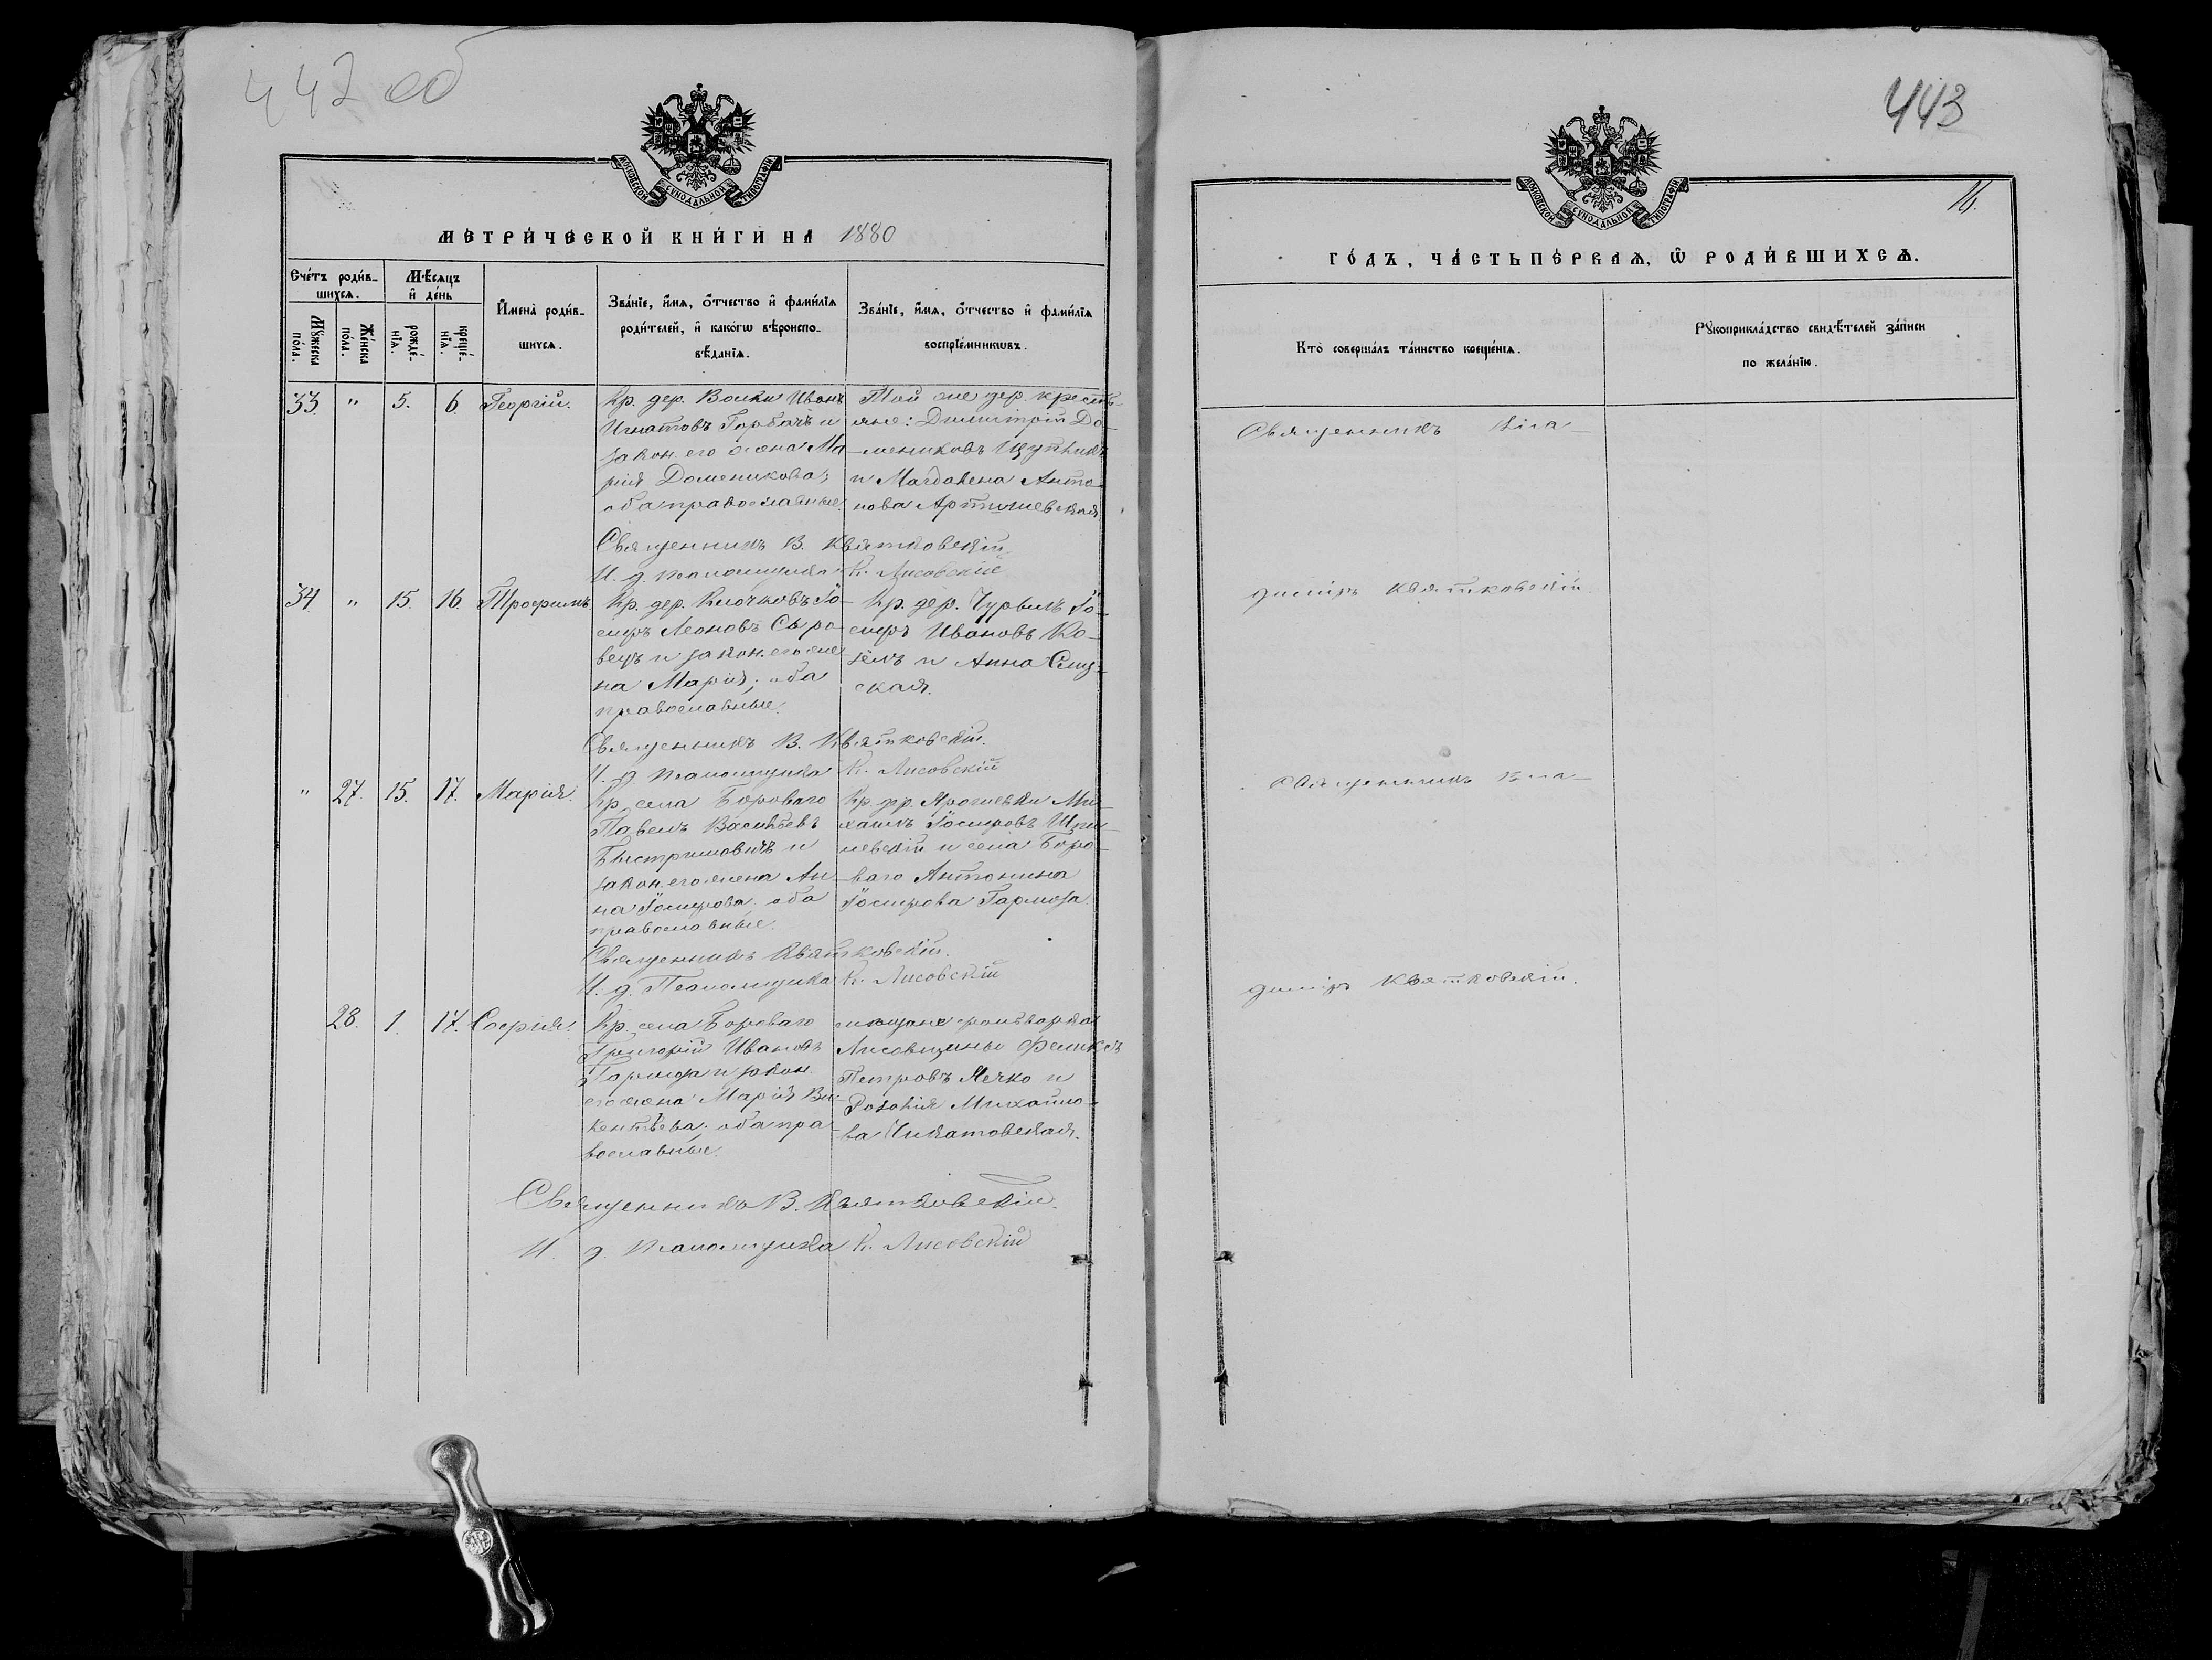 442 об
МОСКОВСКОЙ СУНОДАЛЬНОЙ ТИПОГРАФІИ
МЕТРИ́ЧЕСКОЙ КНИ́ГИ НА 1880
Сче́тъ роди́в-
шихсѧ.
Мѣ́сѧцъ
и҆ де́нь
Мꙋ́жеска
по́ла.
Же́нска
по́ла.
рожде́-
нїѧ.
креще́-
нїѧ.
И҆мена̀ роди́в-
шихсѧ.
Зва́нїе, и҆́мѧ, ѻ҆́тчество и҆ фами́лїѧ
роди́телей, и҆ како́гѡ вѣроиспо-
вѣ́данїѧ.
Зва́нїе, и҆́мѧ, ѻ҆́тчество и҆ фами́лїѧ
воспрїе́мникѡвъ.
33. " 5. 6. Георгій.
Кр. дер. Волки Иванъ
Игнатовъ Горбачъ и
закон. его жена Ма
рія Доменикова;
оба православные.
Той же дер. кресть-
яне: Димитрій До-
мениковъ
и Магдалена Анто-
нова
Священникъ В. Квятковскій
И. д. псаломщика К. Лисовскій
34. " 15. 16. Трофимъ
Кр. дер. Клочковъ Іо-
сифъ Леоновъ Сыро
вецъ и закон. его же
на Марія; оба
православные.
Кр. дер. Чурилъ Іо-
сифъ Ивановъ Ко-
зелъ и Анна Слуц-
ская.
Священникъ В. Квятковскій.
И. д. псаломщика К. Лисовскій
" 27. 15. 17. Марія.
Кр. села Бороваго
Павелъ Васильевъ
Быстримовичъ и
закон. его жена Ан-
на Іосифова; оба
православные.
Кр. дер. Ми-
хаилъ Іосифовъ
и села Боро-
ваго Антонина
Іосифова Гармоза.
Священникъ Квятковскій.
И. д. Псаломщика К. Лисовскій
28. 1. 17. Софія.
Кр. села Бороваго
Григорій Ивановъ
Гармоза и закон.
его жена Марія Ви-
кентьева; оба пра-
вославные.
мѣщане фольварка
Лисовщины Феликсъ
Петровъ Лечко и
Розалія Михайло-
ва
Священникъ В. Квятковскій.
И. д. псаломщика К. Лисовскій
443
14.
МОСКОВСКОЙ СУНОДАЛЬНОЙ ТИПОГРАФІИ
ГО́ДЪ, ЧА́СТЬ ПЕ́РВАѦ, Ѡ҆ РОДИ́ВШИХСѦ.
Кто̀ соверша́лъ та́инство креще́нїѧ.
Рꙋкоприкла́дство свидѣ́телей за́писи
по жела́нїю.
Священникъ Вла-
димiръ Квятковскій.
Священникъ Вла-
димiръ Квятковскій.